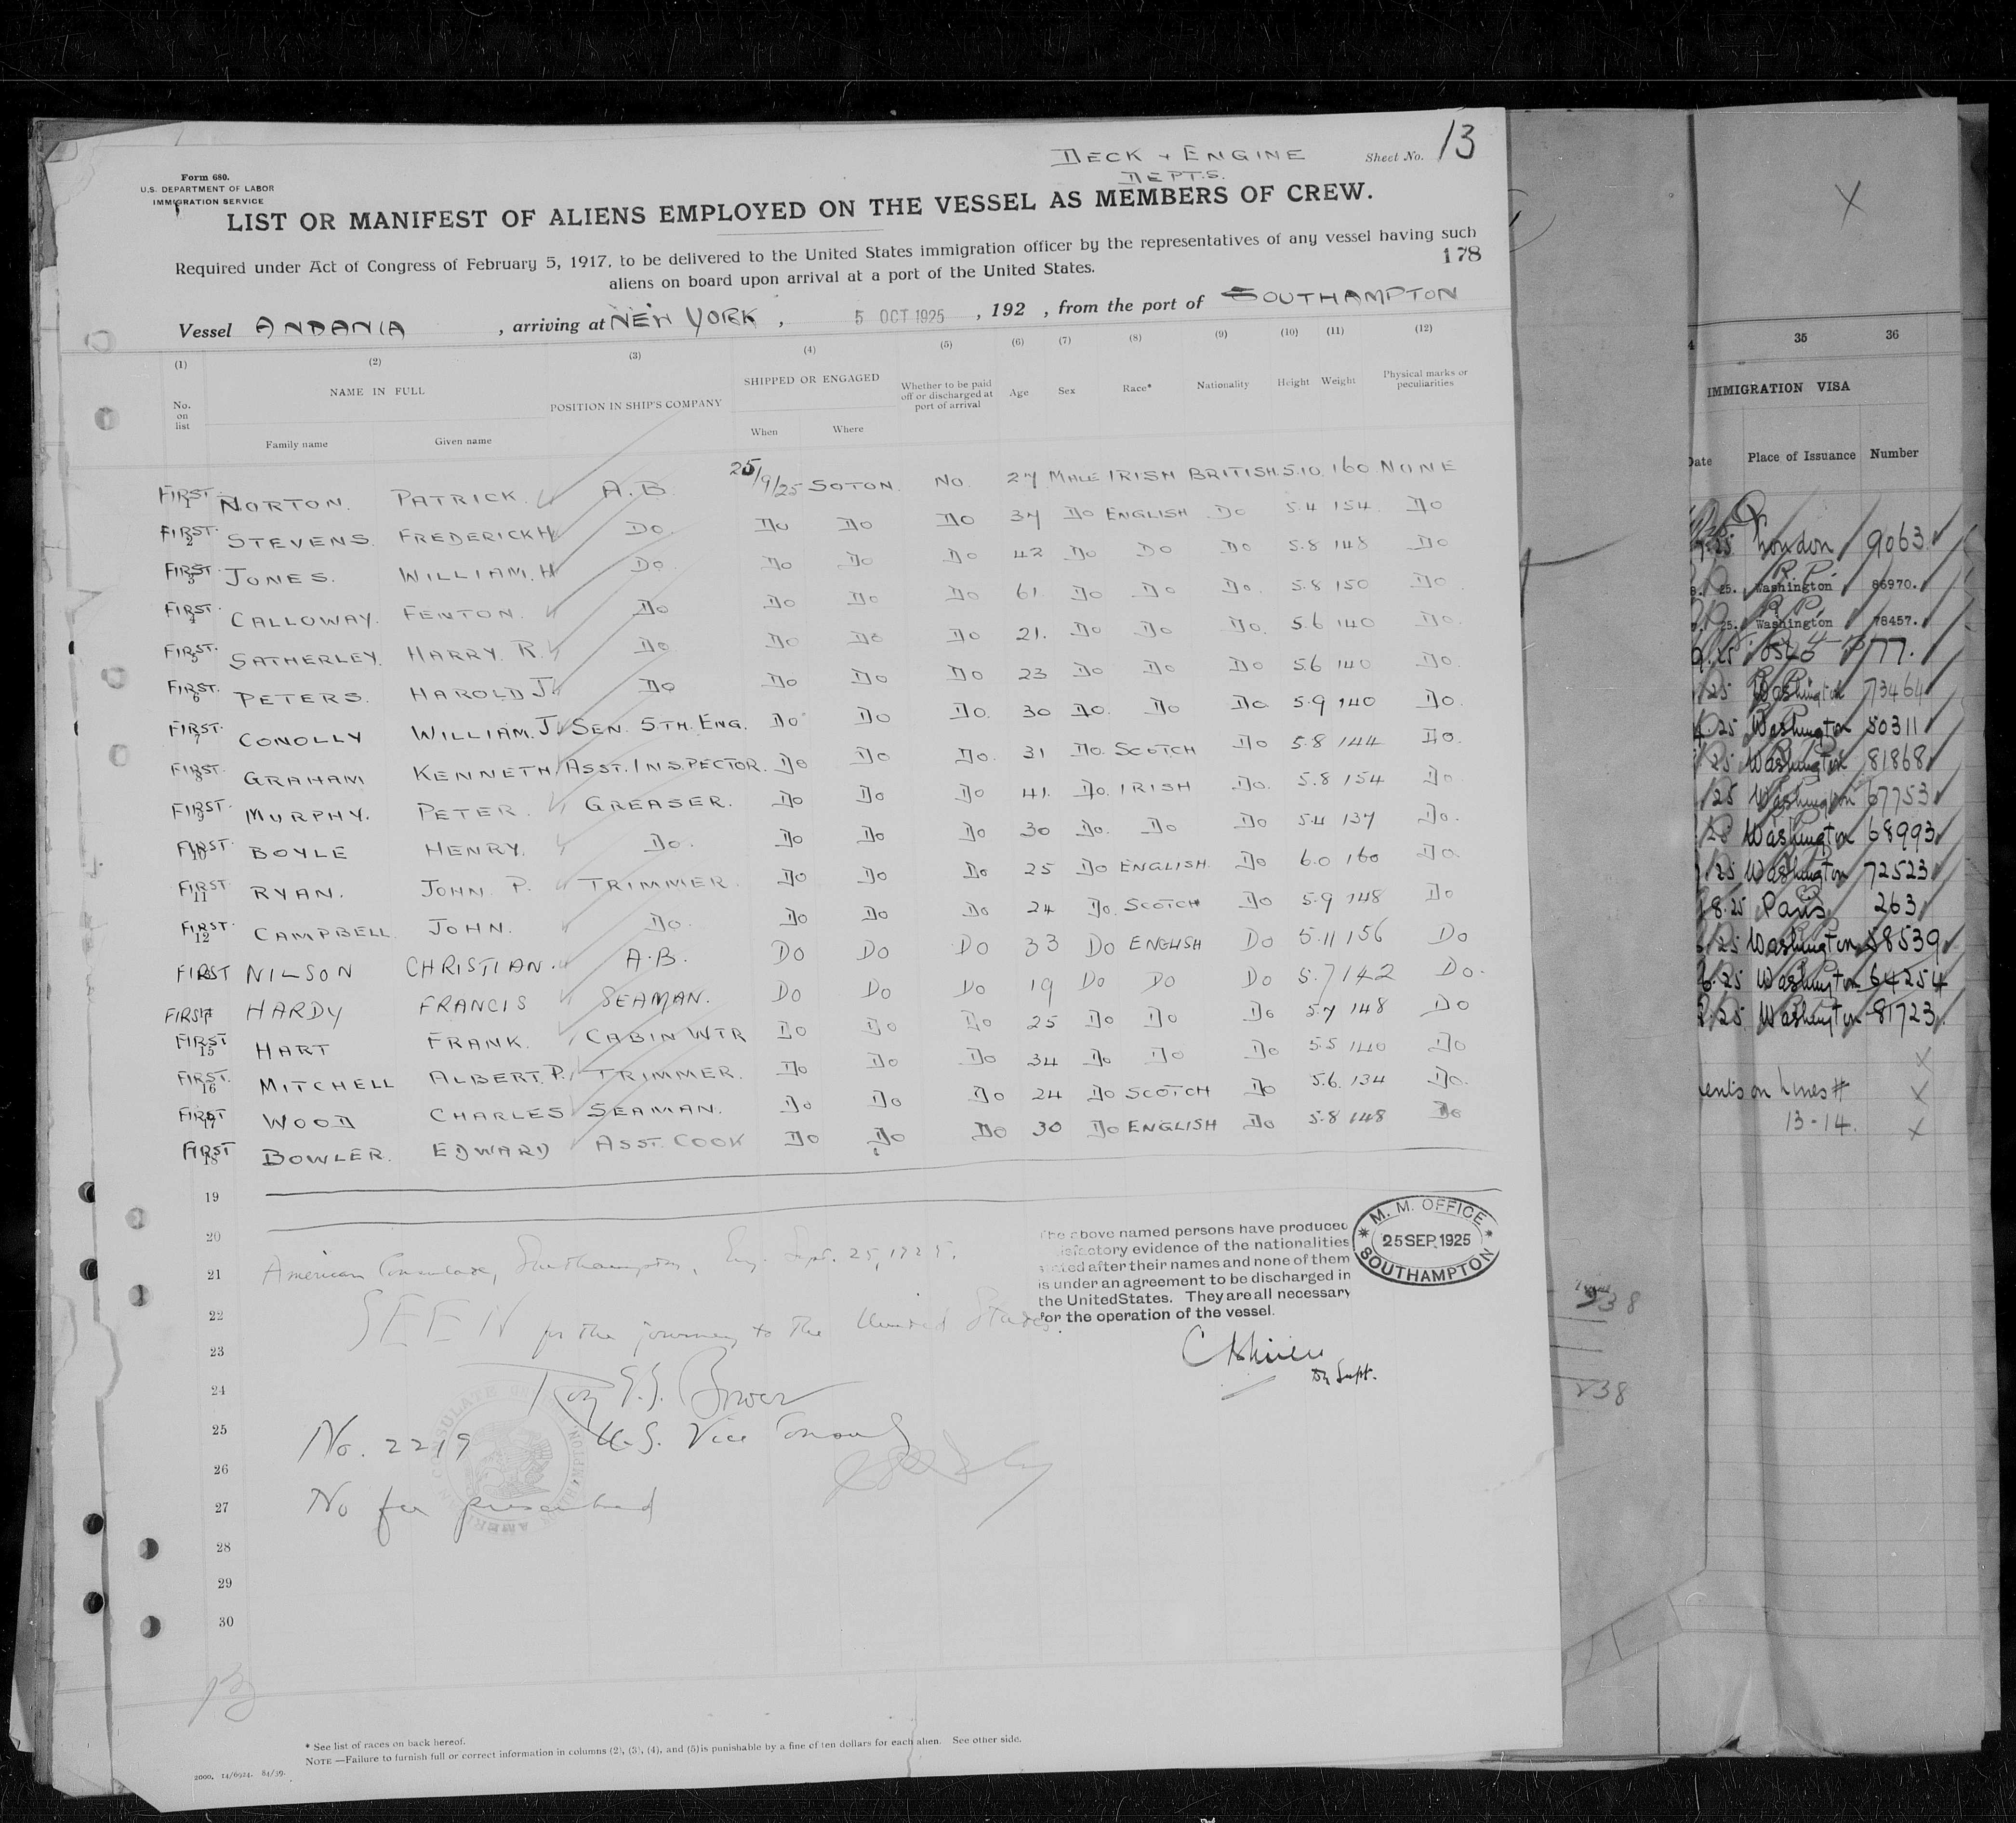 DECK + ENGINE
DEPTS.
Sheet No. 13
Form 680.
U.S. DEPARTMENT OF LABOR
IMMIGRATION SERVICE
LIST OR MANIFEST OF ALIENS EMPLOYED ON THE VESSEL AS MEMBERS OF CREW.
Required under Act of Congress of February 5, 1917, to be delivered to the United States immigration officer by the representatives of any vessel having such
aliens on board upon arrival at a port of the United States.
178
Vessel ANDANIA , arriving at NEW YORK , 5 OCT 1925 , 192 , from the port of SOUTHAMPTON
(1) (2) (3) (4) (5) (6) (7) (8) (9) (10) (11) (12)
No. on list NAME IN FULL POSITION IN SHIP'S COMPANY SHIPPED OR ENGAGED Whether to be paid off or discharged at port of arrival Age Sex Race* Nationality Height Weight Physical marks or peculiarities
Family name Given name When Where
FIRST 1 NORTON. PATRICK. A.B. 25/9/25 SOTON. NO. 27 MALE IRISH BRITISH 5.10. 160. NONE
FIRST. 2 STEVENS. FREDERICK H DO. DO DO DO 37 DO ENGLISH DO 5.4 154. DO
FIRST. 3 JONES. WILLIAM. H DO. DO DO DO 42 DO DO DO 5.8 148 DO
FIRST. 4 CALLOWAY. FENTON. DO DO DO DO 61. DO DO DO. 5.8 150 DO
FIRST. 5 SATHERLEY. HARRY. R. DO DO DO DO 21. DO DO DO. 5.6 140 DO.
FIRST. 6 PETERS. HAROLD J. DO DO DO DO 23 DO DO DO 5.6 140 DO.
FIRST. 7 CONOLLY WILLIAM. J. SEN. 5TH. ENG. DO DO DO. 30 DO. DO DO 5.9 140 DO.
FIRST. 8 GRAHAM KENNETH ASST. INSPECTOR. DO DO DO. 31 DO. SCOTCH DO 5.8 144 DO.
FIRST. 9 MURPHY. PETER. GREASER. DO DO DO 41. DO. IRISH DO. 5.8 154 DO
FIRST. 10 BOYLE HENRY. DO. DO DO DO 30 DO. DO DO 5.4 137 DO.
FIRST 11 RYAN. JOHN. P. TRIMMER. DO DO DO 25 DO ENGLISH. DO 6.0 160 DO.
FIRST. 12 CAMPBELL. JOHN. DO. DO DO DO 24 DO. SCOTCH DO 5.9 148 DO
FIRST NILSON CHRISTIAN. A.B. DO DO DO 33 DO ENGLISH DO 5.11 156 DO
FIRST HARDY FRANCIS SEAMAN. DO DO DO 19 DO DO DO 5.7 142 DO.
FIRST 15 HART FRANK. CABIN WTR DO DO DO 25 DO DO DO 5.7 148 DO
FIRST. 16 MITCHELL ALBERT. P. TRIMMER. DO DO DO 34 DO DO DO 5.5 140 DO
FIRST 17 WOOD CHARLES SEAMAN. DO DO DO 24 DO SCOTCH DO 5.6. 134 DO.
FIRST 18 BOWLER. EDWARD ASST. COOK DO DO DO 30 DO ENGLISH DO 5.8 148 DO
19
20
21 American Consulate, Southampton, Eng. Sept. 25, 1925.
22 SEEN for the journey to the United States.
23
24 Roy E. B. Bower
25 No. 2219 U.S. Vice Consul
26
27 No fee prescribed
28
29
30
The above named persons have produced
satisfactory evidence of the nationalities
stated after their names and none of them
is under an agreement to be discharged in
the United States. They are all necessary
for the operation of the vessel.
M. M. OFFICE
25 SEP. 1925
SOUTHAMPTON
Dy Supt.
* See list of races on back hereof.
NOTE —Failure to furnish full or correct information in columns (2), (3), (4), and (5) is punishable by a fine of ten dollars for each alien. See other side.
2000. 14/6924. 84/39.
X
35 36
IMMIGRATION VISA
Date Place of Issuance Number
London 9063
25. Washington 86970.
25. Washington 78457.
25 Washington 73464
25 Washington 50311
25 Washington 81868
25 Washington 67753
25 Washington 68993
25 Washington 72523
8.25 Paris 263
25 Washington 58539
6.25 Washington 64254
25 Washington 81723
X
on lines # X
13-14. X
238
238